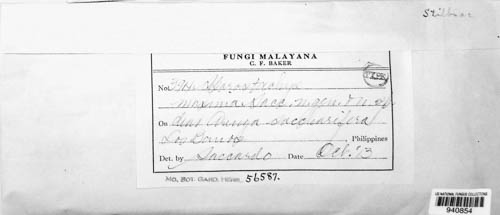 Stilbaceae
FUNGI MALAYANA
C. F. BAKER
No.
maxima Sacc. n. gen. & n. sp.
On dead Arenga saccharifera
Los Banos Philippines
Det. by Saccardo Date Oct. 13
MO. BOT. GARD. HERB. 56587.
US NATIONAL FUNGUS COLLECTIONS
940854